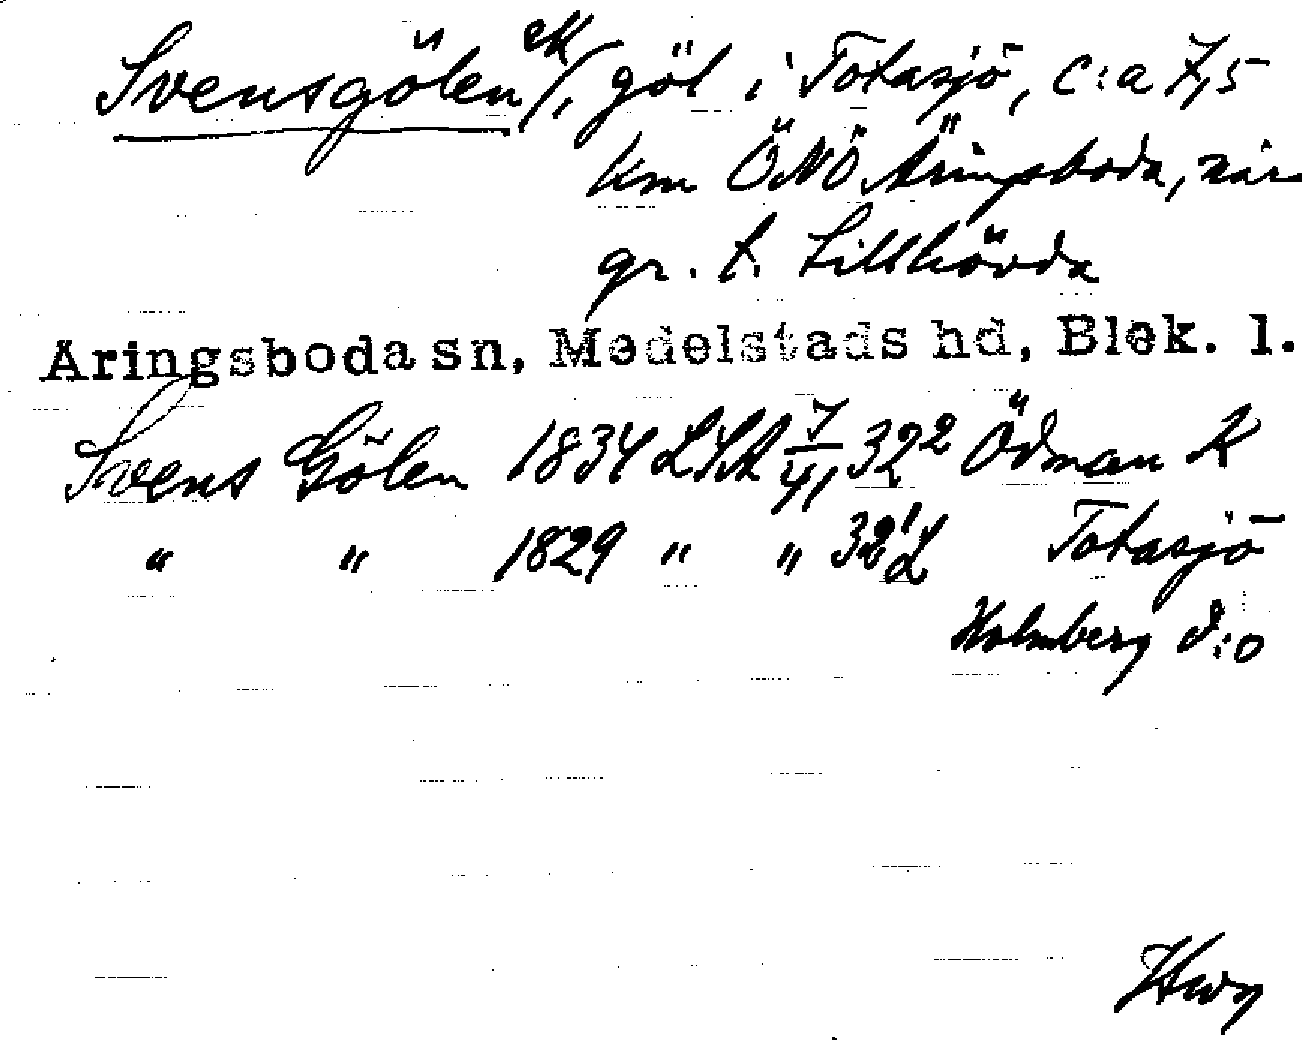 Svensgölen ek/, göl i Totasjö, c:a 7,5
km ÖNÖ Äringsboda, när
gr. t. Tillhövda
Aringsboda sn, Medelstads hd, Blek. l.
Svens Gölen 1834 LSA 7/41 32² Ödman K
" " 1829 " " 32¹ L Totasjö
Holmberg d:o